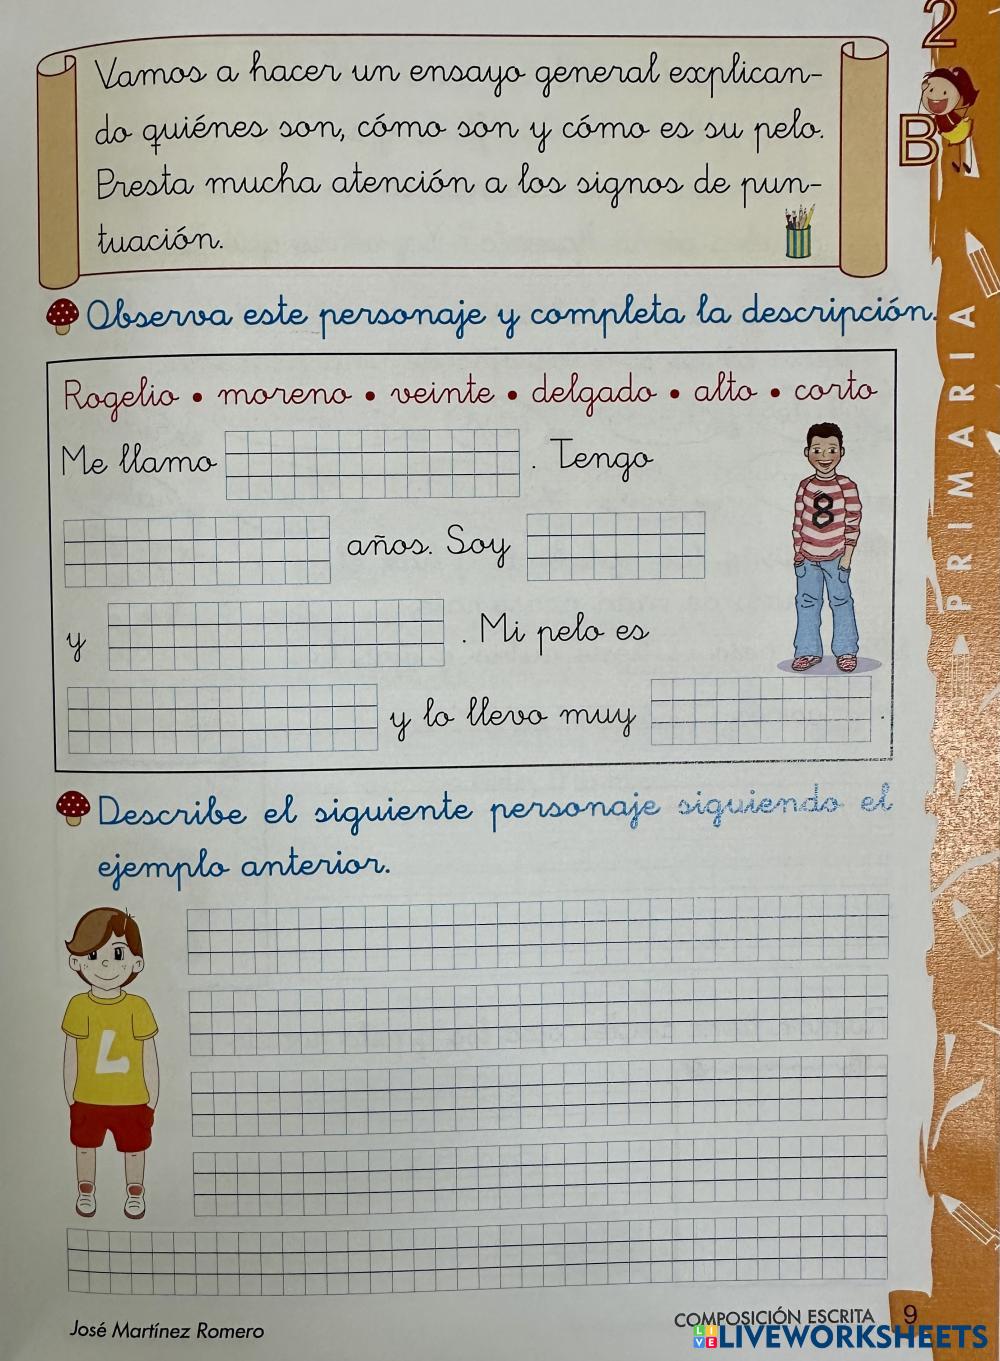 2
B
PRIMARIA
Vamos a hacer un ensayo general explican-
do quiénes son, cómo son y cómo es su pelo.
Presta mucha atención a los signos de pun-
tuación.
Observa este personaje y completa la descripción.
Rogelio • moreno • veinte • delgado • alto • corto
Me llamo . Tengo
años. Soy
y . Mi pelo es
y lo llevo muy .
8
Describe el siguiente personaje siguiendo el
ejemplo anterior.
L
José Martínez Romero
COMPOSICIÓN ESCRITA 9
LIVEWORKSHEETS